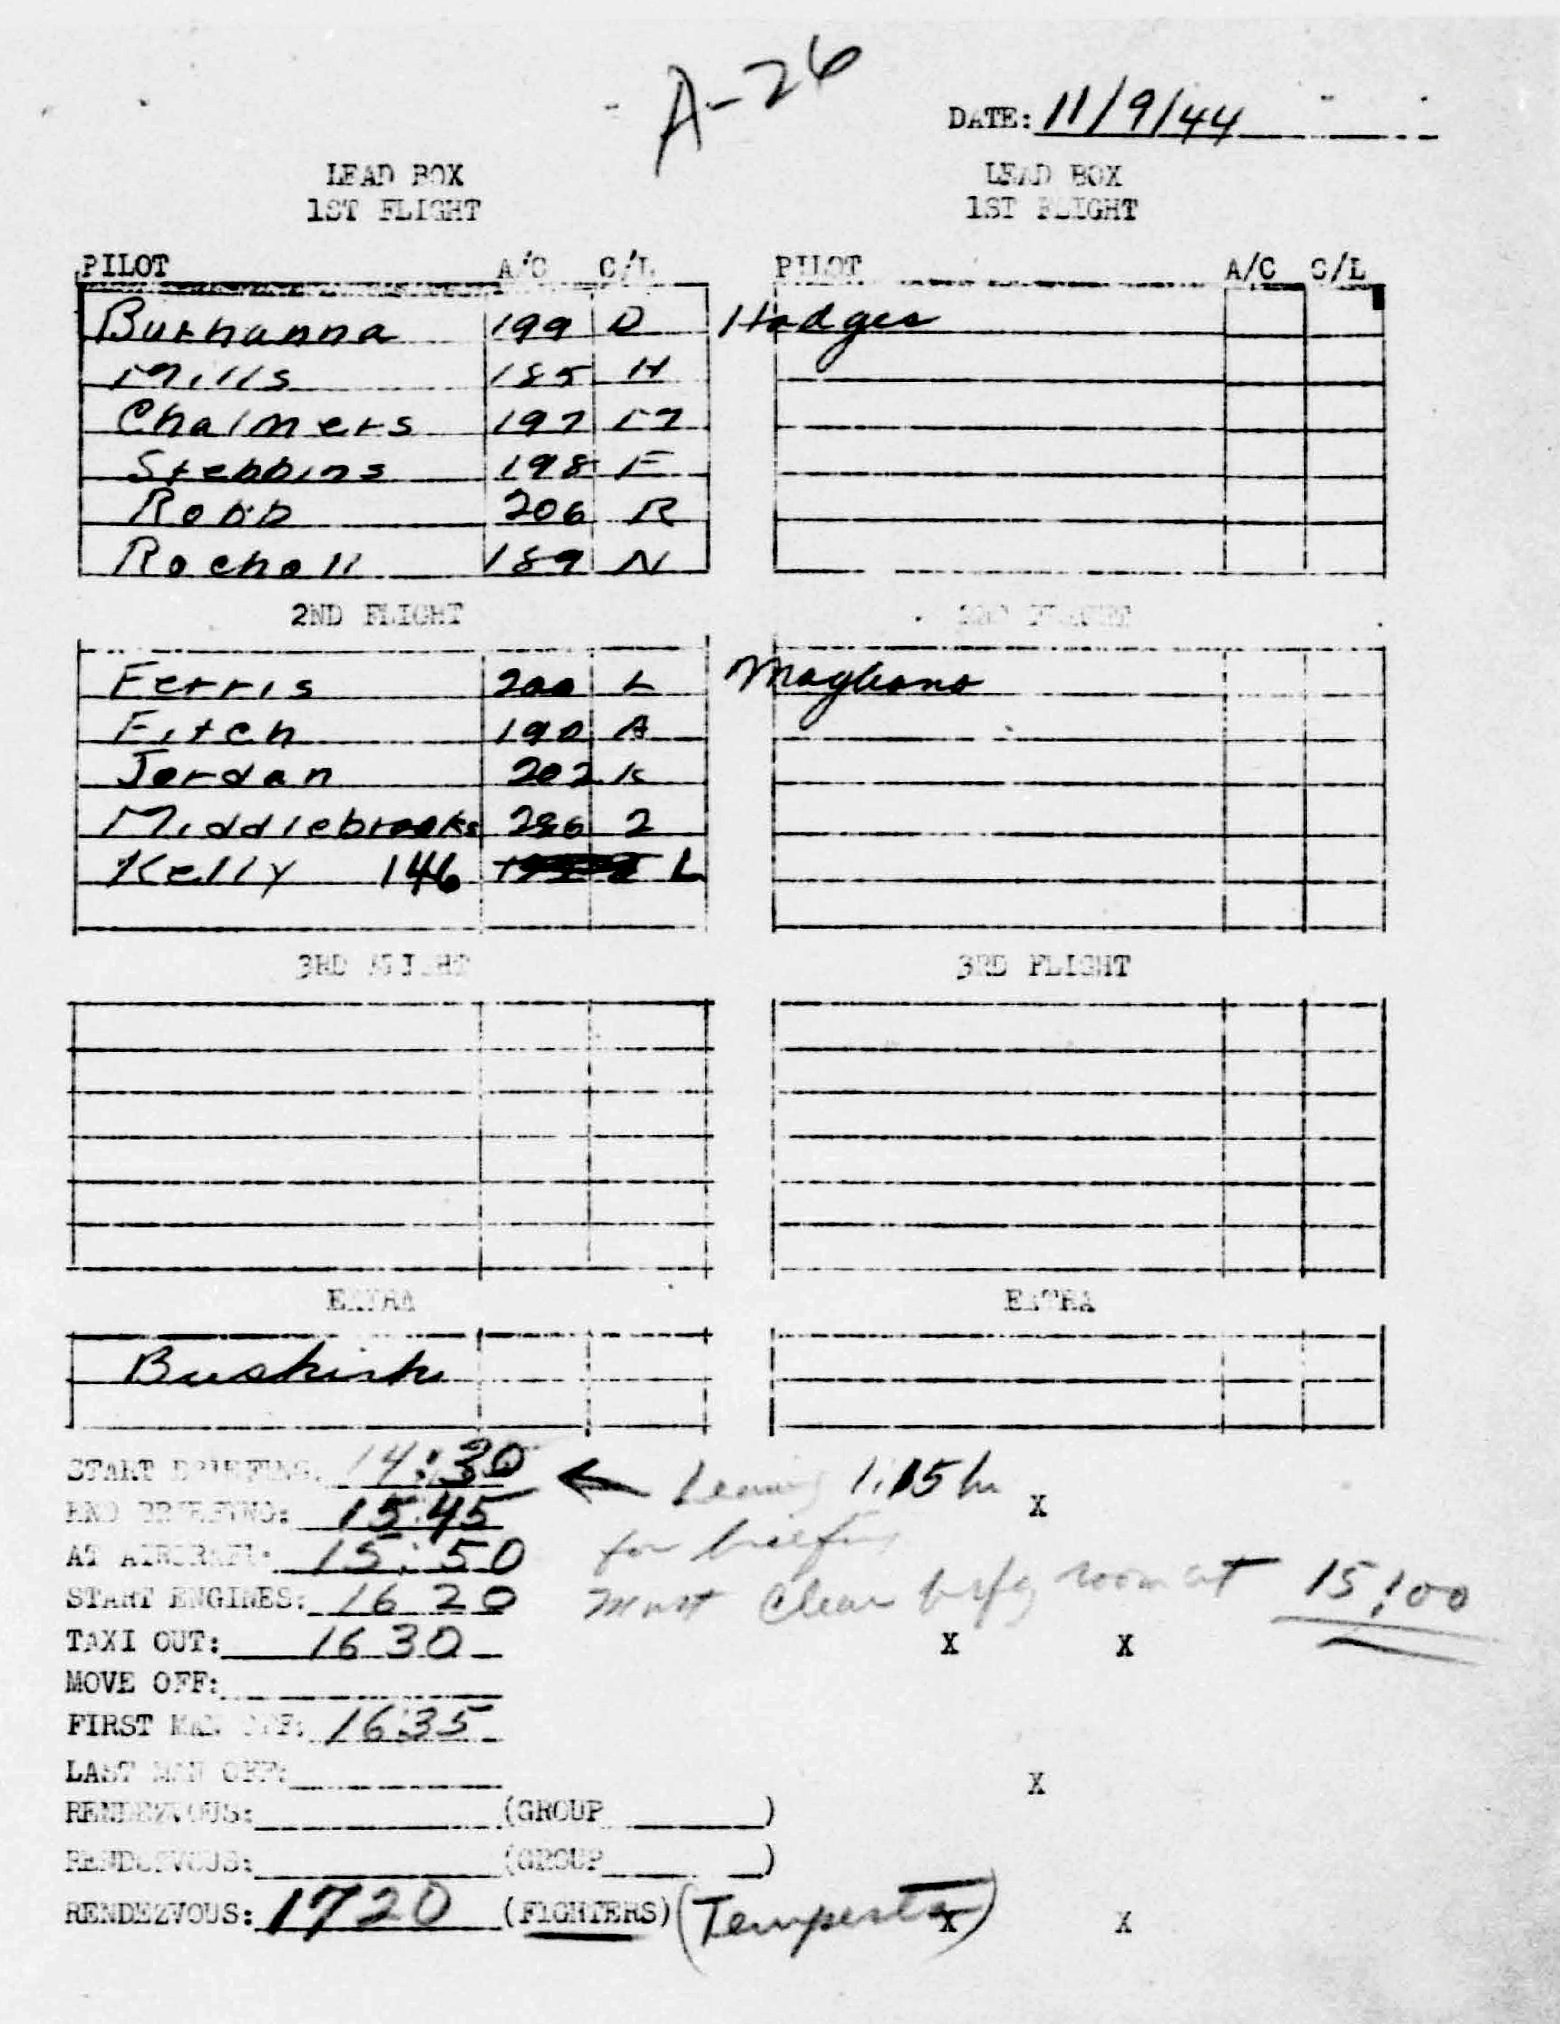 A-26
DATE: 11/9/44
LEAD BOX
1ST FLIGHT
LEAD BOX
1ST FLIGHT
PILOT A/C C/L
Burhanna 199 D
Mills 185 H
Chalmers 197 M
Stebbins 198 F
Robb 206 R
Rocholl 189 N
PILOT A/C C/L
Hodges
2ND FLIGHT
Ferris 200 L
Fitch 190 A
Jordan 202 K
Middlebrooks 286 2
Kelly 146 L
2ND FLIGHT
Magliano
3RD FLIGHT
3RD FLIGHT
EXTRA
Buskirk
EXTRA
START BRIEFING: 14:30 ← Leaving 1:15 hr
END BRIEFING: 15:45 X
AT AIRCRAFT: 15:50 for briefing
START ENGINES: 16 20 Must Clear brfg room at 15:00
TAXI OUT: 16 30 X X
MOVE OFF:
FIRST MAN OFF: 16:35
LAST MAN OFF: X
RENDEZVOUS: (GROUP )
RENDEZVOUS: (GROUP )
RENDEZVOUS: 1720 (FIGHTERS) (Tempests) X X